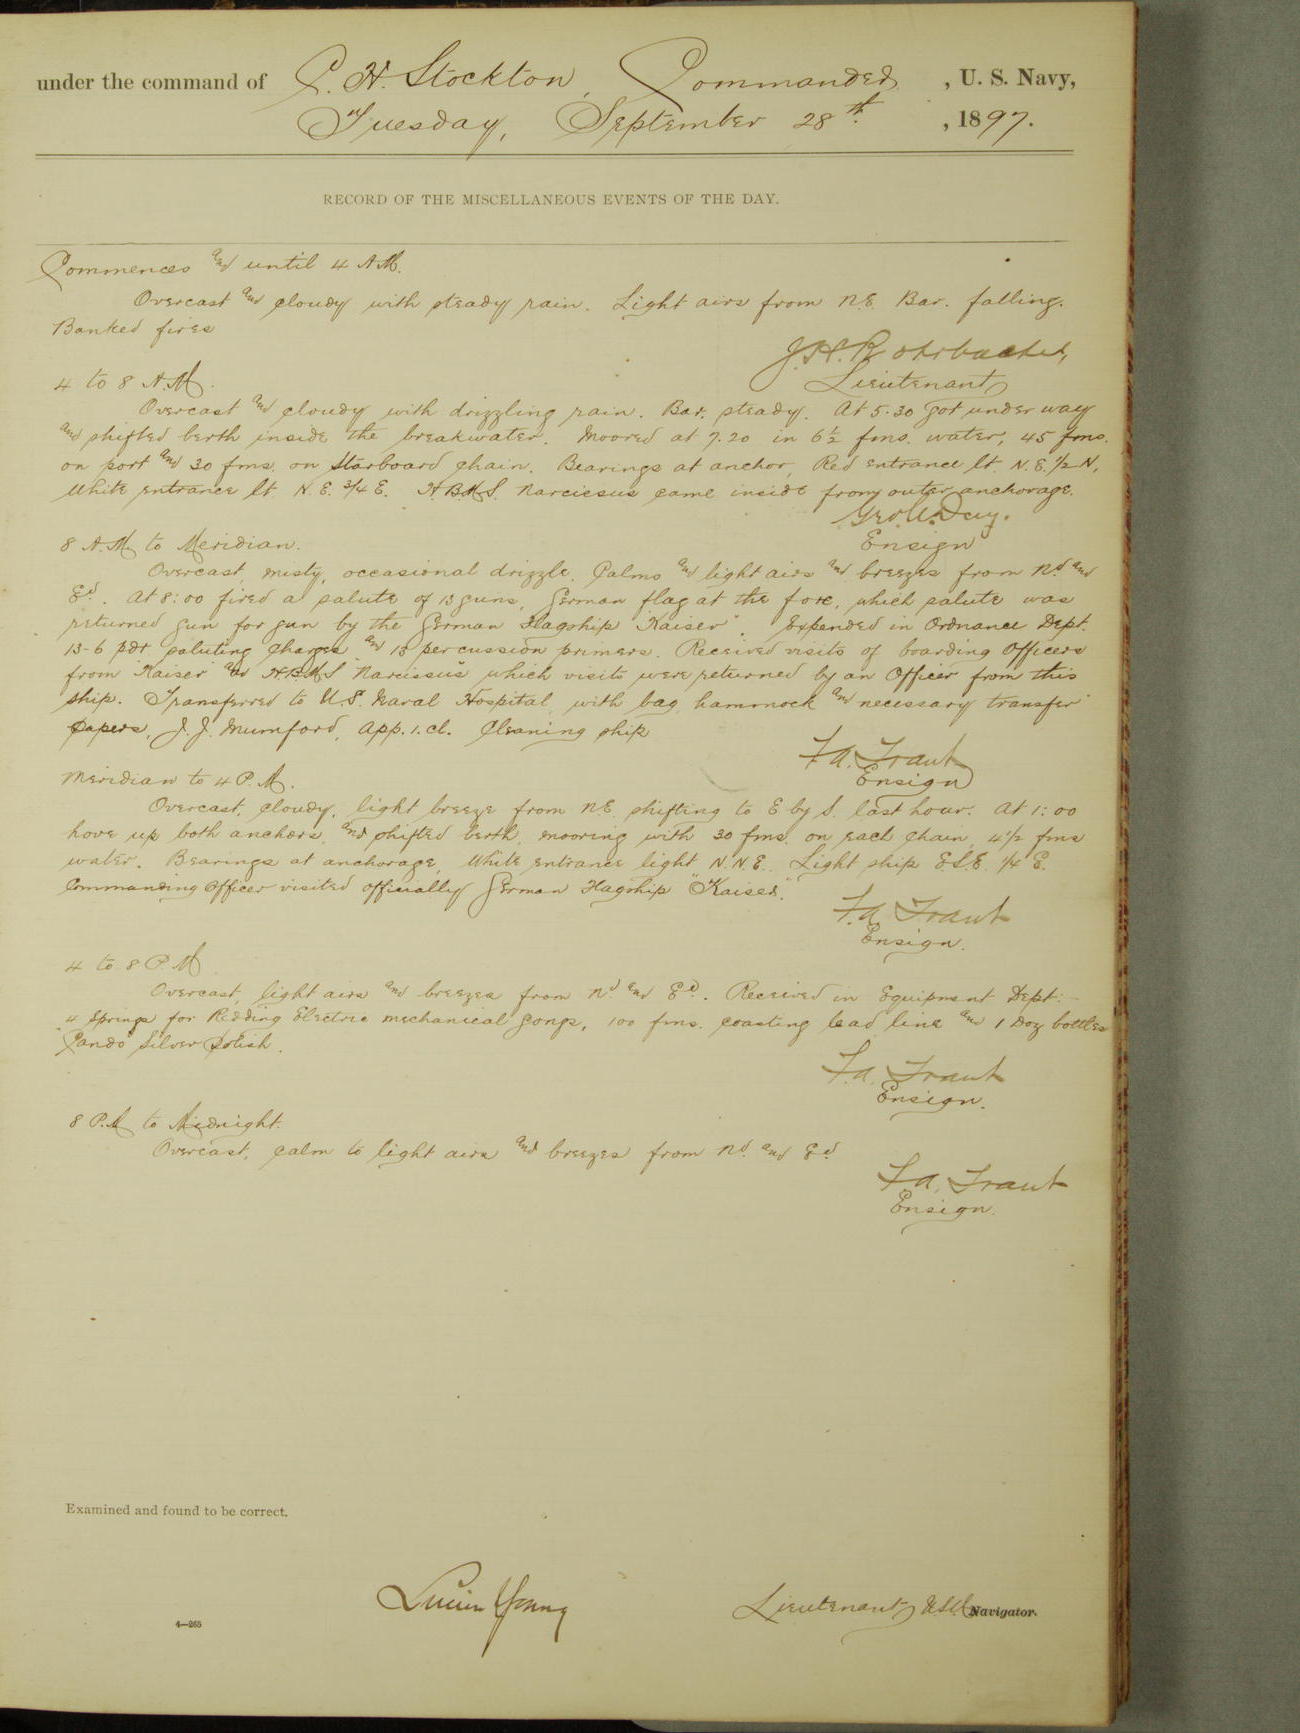 under the command of C. H. Stockton, Commander, U. S. Navy,
Tuesday, September 28th, 1897.
RECORD OF THE MISCELLANEOUS EVENTS OF THE DAY.
Commences and until 4 A.M.
Overcast and cloudy with steady rain. Light airs from N.E. Bar. falling.
Banked fires
J.H. Rohrbacher,
Lieutenant
4 to 8 A.M.
Overcast and cloudy with drizzling rain. Bar. steady. At 5.30 got under way
and shifted berth inside the breakwater. Moored at 7.20 in 6½ fms. water, 45 fms.
on port and 30 fms. on starboard chain. Bearings at anchor, Red entrance lt. N.E. ½ N,
White entrance lt. N.E. ¾ E. H.B.M.S. Narcissus came inside from outer anchorage.
Geo. C. Day.
Ensign
8 A.M. to Meridian.
Overcast, misty, occasional drizzle. Calms and light airs and breezes from Nd and
Ed. At 8:00 fired a salute of 13 guns, German flag at the fore, which salute was
returned gun for gun by the German Flagship "Kaiser". Expended in Ordnance Dept.
13-6 pdr saluting charges and 13 percussion primers. Received visits of boarding officers
from "Kaiser" and H.B.M.S "Narcissus" which visits were returned by an Officer from this
ship. Transferred to U.S. Naval Hospital, with bag, hammock and necessary transfer
papers, J. J. Mumford, App. 1. cl. Cleaning ship
F.A. Traut
Ensign
Meridian to 4 P.M.
Overcast, cloudy, light breeze from N.E. shifting to E by S. last hour. At 1:00
hove up both anchors, and shifted berth, mooring with 30 fms. on each chain, 4½ fms
water. Bearings at anchorage, White entrance light N.N.E. Light ship E.S.E. ¼ E.
Commanding Officer visited officially German Flagship "Kaiser".
F.A. Traut
Ensign.
4 to 8 P.M.
Overcast, light airs and breezes from Nd and Ed. Received in Equipment Dept:-
4 springs for Redding Electric mechanical gongs, 100 fms. coasting lead line and 1 Doz bottles
"Cando" Silver Polish.
F.A. Traut
Ensign.
8 P.M. to Midnight.
Overcast, calm to light airs and breezes from Nd. and Ed
F.A. Traut
Ensign.
Examined and found to be correct.
Lucien Young
Lieutenant U.S.N. Navigator.
4—265